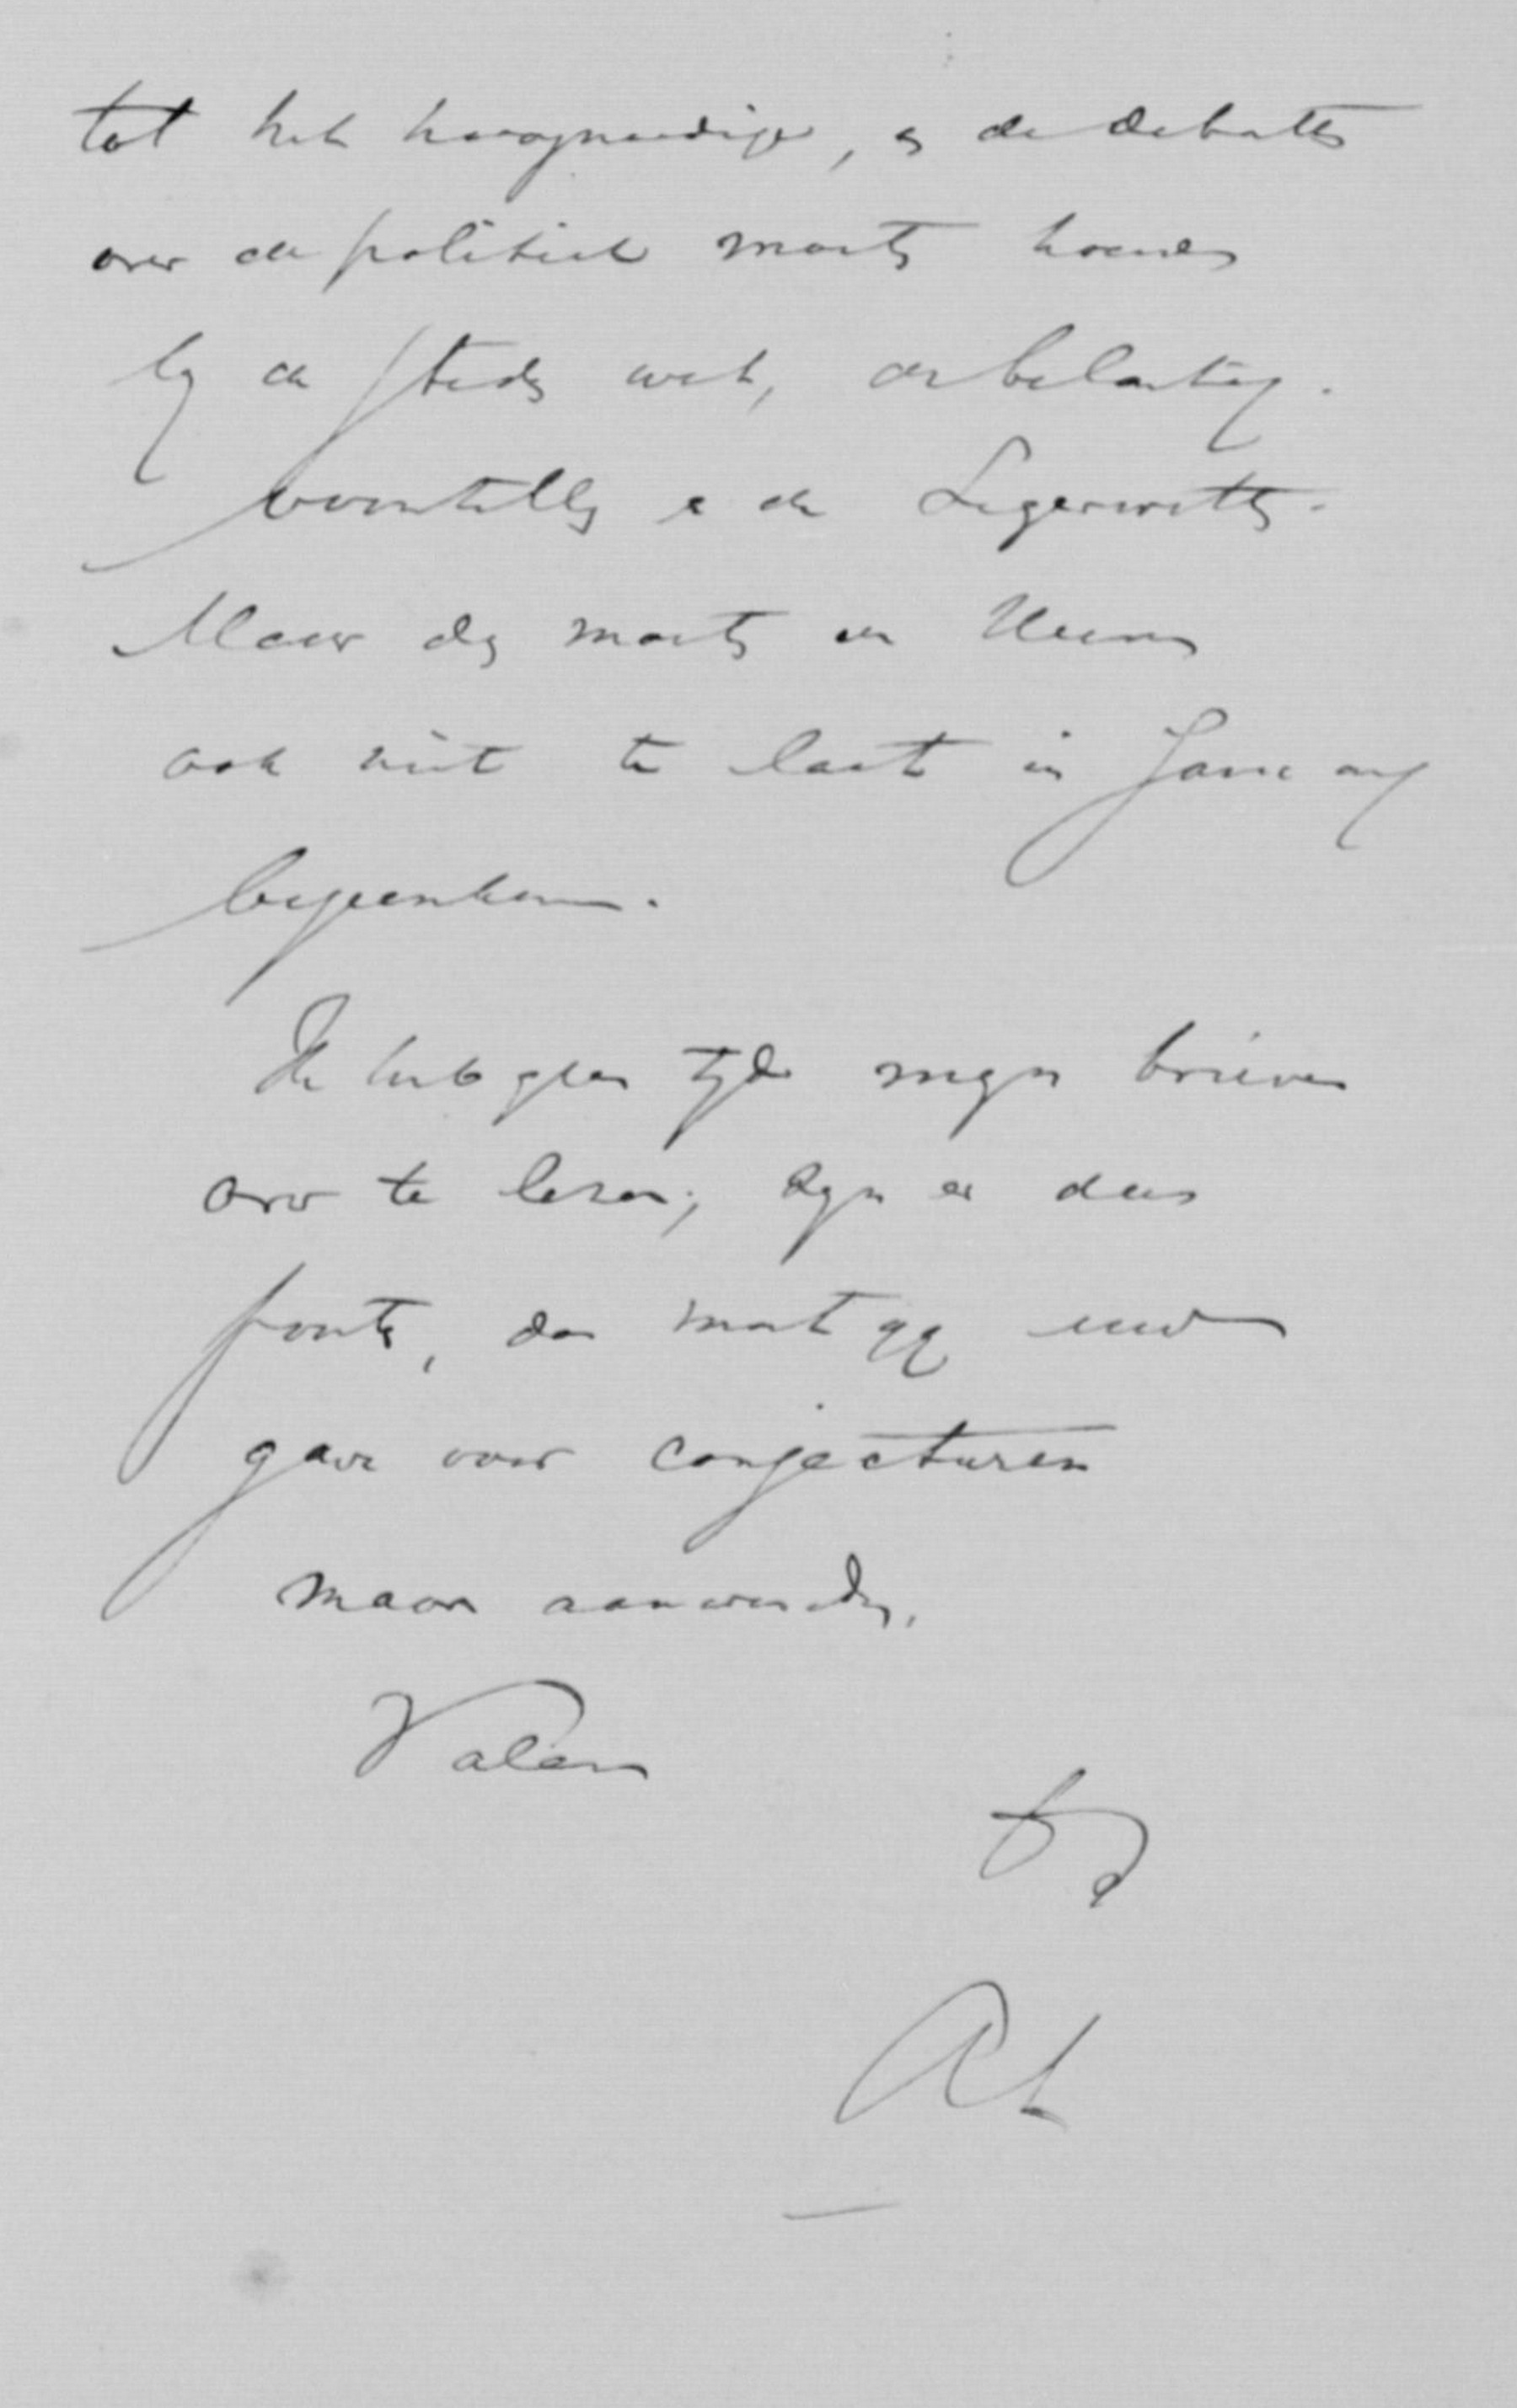 tot het hoognoodige, en de debatten
over de politiek moeten houden
by de Kieswet, de belasting-
voorstellen en de Legerwetten.
Maar dan moeten de Heeren
ook niet te laat in January
bijeenkomen.
Ik heb geen tijd mijn brieven
over te lezen; zijn er dus
fouten, dan moet gij uw
gave voor conjecturen
maar aanwenden.
Valeas